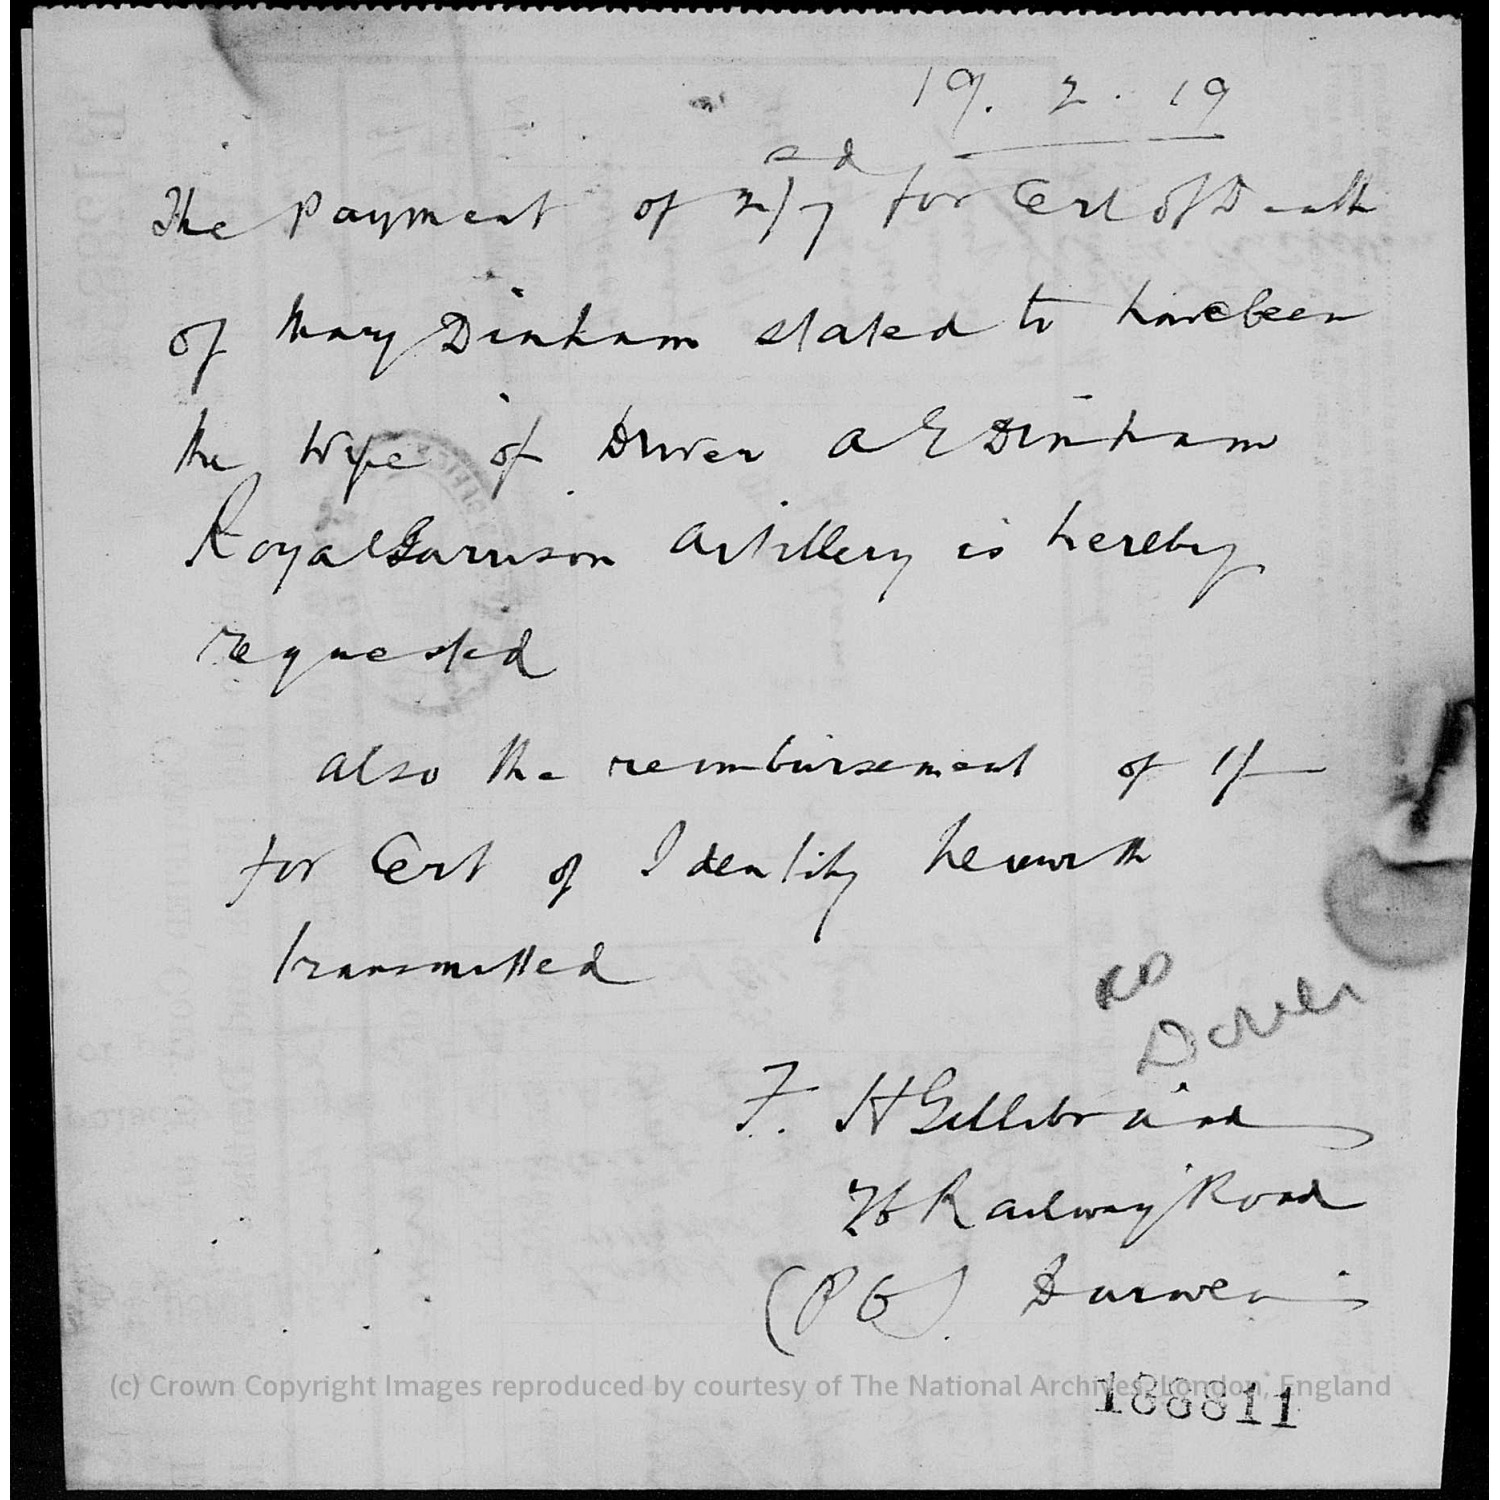 19. 2. 19
s d
The Payment of 2/7 for Cert of Death
of Mary Dinham stated to have been
the Wife of Driver A E Dinham
Royal Garrison Artillery is hereby
requested
also the reimbursement of 1/-
for Cert of Identity herewith
transmitted
RO
Dover
F. H Gillibrand
26 Railway Road
(P G) Darwen
(c) Crown Copyright Images reproduced by courtesy of The National Archives, London, England
188811